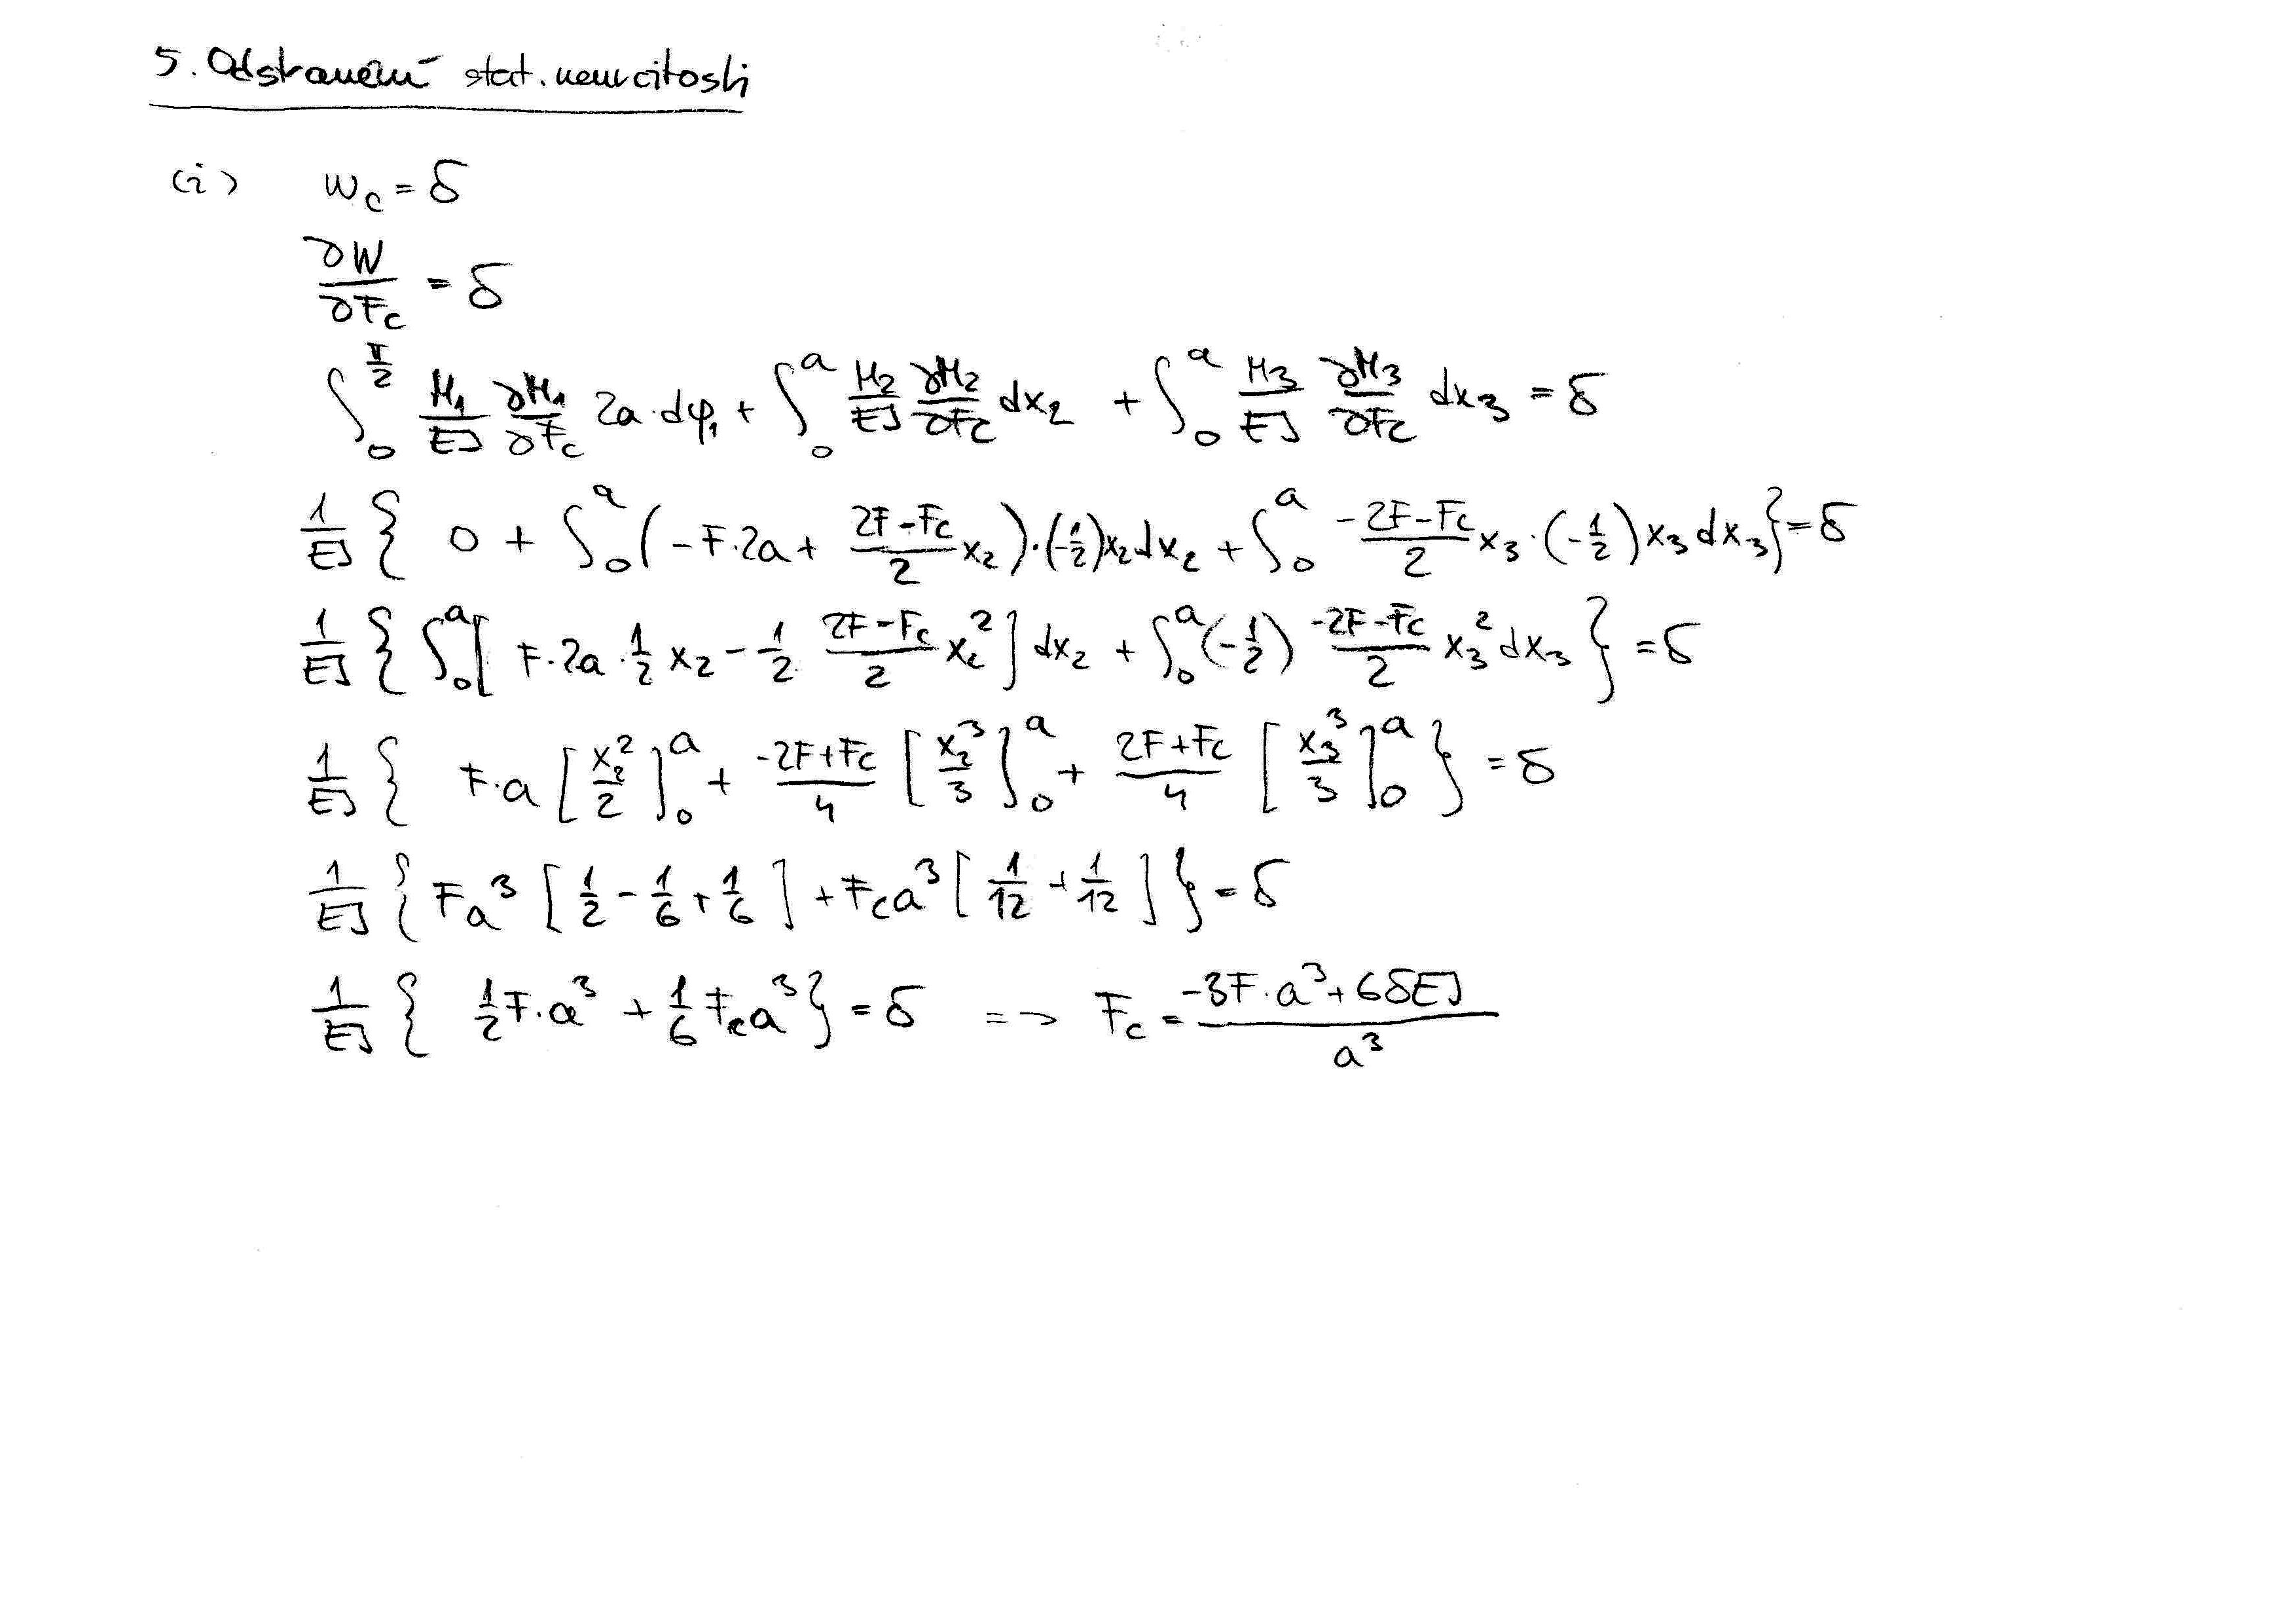 5. Odstranění stat. neurcitosti
(i) w_c = δ
∂W/∂F_c = δ
∫_0^{π/2} M_1/EJ ∂M_1/∂F_c 2a·dφ_1 + ∫_0^a M_2/EJ ∂M_2/∂F_c dx_2 + ∫_0^a M_3/EJ ∂M_3/∂F_c dx_3 = δ
1/EJ { 0 + ∫_0^a (-F·2a + (2F-F_c)/2 x_2)·(-1/2)x_2 dx_2 + ∫_0^a (-2F-F_c)/2 x_3·(-1/2)x_3 dx_3 } = δ
1/EJ { ∫_0^a [ F·2a·1/2 x_2 - 1/2 (2F-F_c)/2 x_2^2 ] dx_2 + ∫_0^a (-1/2) (-2F-F_c)/2 x_3^2 dx_3 } = δ
1/EJ { F·a [x_2^2/2]_0^a + (-2F+F_c)/4 [x_2^3/3]_0^a + (2F+F_c)/4 [x_3^3/3]_0^a } = δ
1/EJ { Fa^3 [1/2 - 1/6 + 1/6] + F_c a^3 [1/12 + 1/12] } = δ
1/EJ { 1/2 F·a^3 + 1/6 F_c a^3 } = δ => F_c = (-3F·a^3 + 6δEJ)/a^3